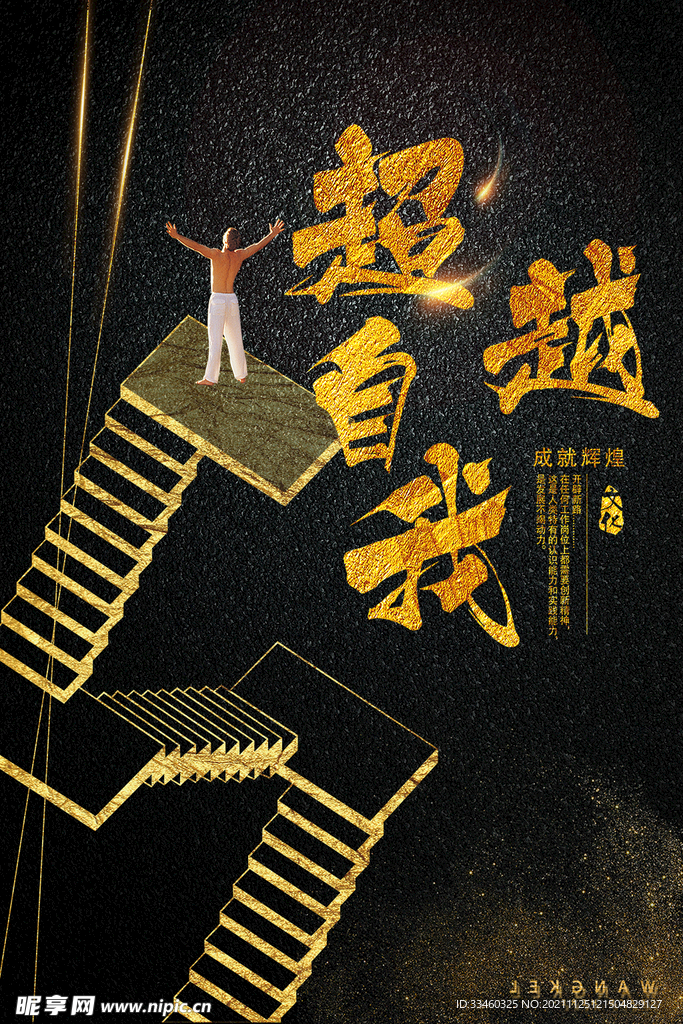 超越
自我
成就辉煌
文化
开辟新路………
在任何工作岗位上都需要创新精神，
这是人类特有的认识能力和实践能力，
是发展不竭动力。
WANGKEL
昵享网 www.nipic.cn
ID:33460325 NO:20211125121504829127